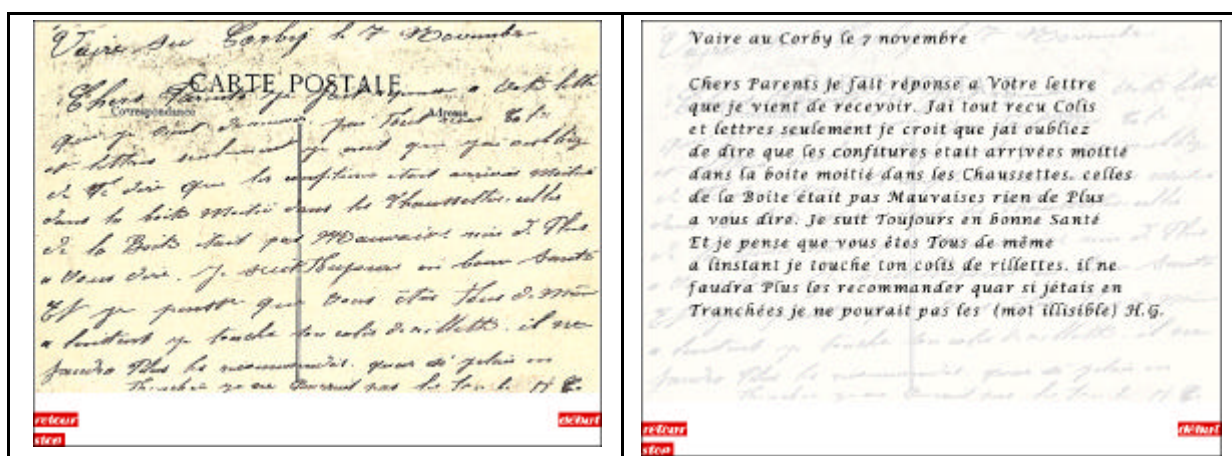 Vaire au Corby le 7 Novembre
CARTE POSTALE
Correspondance
Adresse
Chers Parents je fait réponse a Votre lettre
que je vient de recevoir. jai tout recu Colis
et lettres seulement je croit que jai oubliez
de dire que les confitures etait arrivées moitié
dans la boite moitié dans les Chaussettes. celles
de la Boite était pas Mauvaises rien de Plus
a Vous dire. Je suit Toujours en bonne Santé
Et je pense que vous êtes Tous de même
a linstant je touche ton colis de rillettes. il ne
faudra Plus les recommander. quar si jétais en
Tranchées je ne pourait pas les H.G.
retour
début
stop
Vaire au Corby le 7 novembre
Chers Parents je fait réponse a Votre lettre
que je vient de recevoir. Jai tout recu Colis
et lettres seulement je croit que jai oubliez
de dire que les confitures etait arrivées moitié
dans la boite moitié dans les Chaussettes. celles
de la Boite était pas Mauvaises rien de Plus
a vous dire. Je suit Toujours en bonne Santé
Et je pense que vous êtes Tous de même
a linstant je touche ton colis de rillettes. il ne
faudra Plus les recommander quar si jétais en
Tranchées je ne pourait pas les (mot illisible) H.G.
retour
début
stop